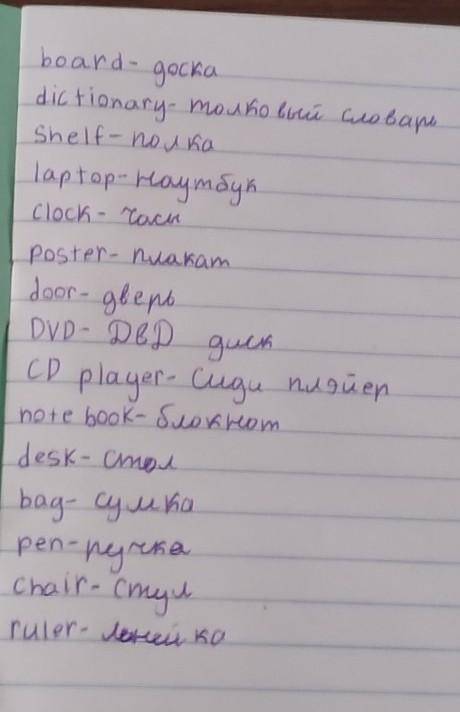 board- доска
dictionary- толковый словарь
shelf- полка
laptop- наутбук
clock- часы
poster- плакат
door- дверь
DVD- ДВД диск
CD player- Сиди плэйер
note book- блокнот
desk- стол
bag- сумка
pen- ручка
chair- стул
ruler- линейка